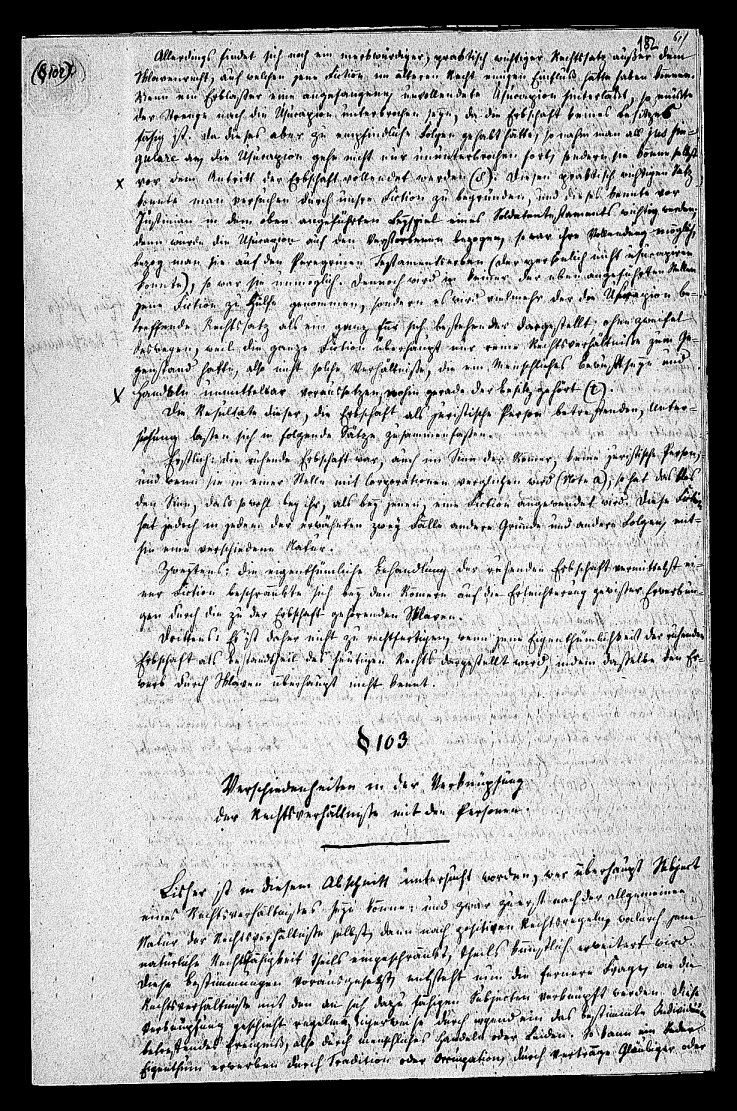 182
61
(§102)
Allerdings findet sich noch ein merkwürdiger, praktisch wichtiger Rechtssatz außer dem
Sklavenrecht, auf welchen jene Fiction im ältern Recht einigen Einfluß hätte haben können.
Wenn ein Erblasser eine angefangene, unvollendete Usucapion hinterließ, so müßte
der Strenge nach die Usucapion unterbrochen seyn, da die Erbschaft keines Besitzes
fähig ist. Da dieses aber zu empfindliche Folgen gehabt hätte, so nahm man als jus sin-
gulare an, die Usucapion gehe nicht nur ununterbrochen fort, sondern sie könne selbst
x vor dem Antritt der Erbschaft vollendet werden (s). Diesen praktisch wichtigen Satz
konnte man versuchen durch unsre Fiction zu begründen, und dieses konnte vor
Justinian in dem oben angeführten Beyspiel eines Soldatentestaments wichtig werden;
denn wurde die Usucapion auf den Verstorbenen bezogen, so war ihre Vollendung möglich,
bezog man sie auf den Peregrinen Testamentserben (der persönlich nicht usucapiren
konnte), so war sie unmöglich. Dennoch wird in keiner der oben angeführten Stellen
jene Fiction zu Hülfe genommen, sondern es wird vielmehr der die Usucapion be-
treffende Rechtssatz als ein ganz für sich bestehender dargestellt, ohne Zweifel
deswegen, weil die ganze Fiction überhaupt nur reine Rechtsverhältnisse zum Ge-
genstand hatte, also nicht solche Verhältnisse, die ein Menschliches Bewußtseyn und
x Handeln unmittelbar voraussetzen, wohin gerade der Besitz gehört (t).
Die Resultate dieser, die Erbschaft als juristische Person betreffenden, Unter-
suchung lassen sich in folgende Sätze zusammenfassen.
Erstlich: die ruhende Erbschaft war, auch im Sinn der Römer, keine juristische Person,
und wenn sie in einer Stelle mit Corporationen verglichen wird (Note a), so hat das
den Sinn, daß sowohl bey ihr, als bey jenen, eine Fiction angewendet wird. Diese Fiction
hat jedoch in jedem der erwähnten zwey Fälle andere Gründe und andere Folgen, mit-
hin eine verschiedene Natur.
Zweytens: die eigenthümliche Behandlung der ruhenden Erbschaft vermittelst ei-
ner Fiction beschränkte sich bey den Römern auf die Erleichterung gewisser Erwerbun-
gen durch die zu der Erbschaft gehörenden Sklaven.
Drittens: Es ist daher nicht zu rechtfertigen, wenn jene Eigenthümlichkeit der ruhenden
Erbschaft als Bestandtheil des heutigen Rechts dargestellt wird, indem dasselbe den Er-
werb durch Sklaven überhaupt nicht kennt.
§ 103
Verschiedenheiten in der Verknüpfung
der Rechtsverhältnisse mit den Personen.
Bisher ist in diesem Abschnitt untersucht worden, wer überhaupt Subject
eines Rechtsverhältnisses seyn könne: und zwar zuerst nach der allgemeinen
Natur der Rechtsverhältnisse selbst, dann nach positiven Rechtsregeln, wodurch jene
natürliche Rechtsfähigkeit theils eingeschränkt, theils künstlich erweitert wird.
Diese Bestimmungen vorausgesetzt, entsteht nun die fernere Frage, wie die
Rechtsverhältnisse mit den an sich dazu fähigen Subjecten verknüpft werden. Diese
Verknüpfung geschieht regelmäßigerweise durch irgend ein das bestimmte Individuum
betreffendes Ereigniß, also durch menschliches Handeln oder Leiden. So kann ein Jeder
Eigenthum erwerben durch Tradition oder Occupation, durch Verträge Gläubiger oder